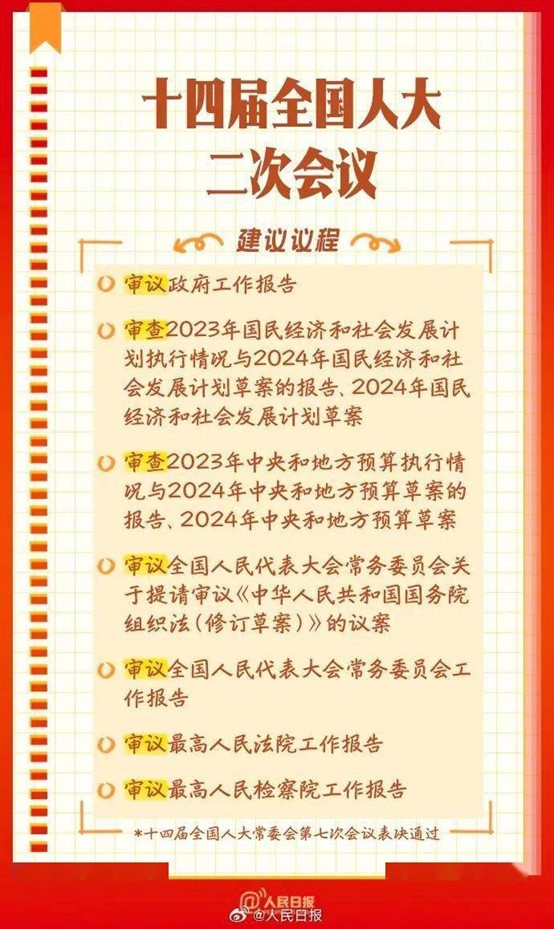 十四届全国人大
二次会议
建议议程
审议政府工作报告
审查2023年国民经济和社会发展计
划执行情况与2024年国民经济和社
会发展计划草案的报告、2024年国民
经济和社会发展计划草案
审查2023年中央和地方预算执行情
况与2024年中央和地方预算草案的
报告、2024年中央和地方预算草案
审议全国人民代表大会常务委员会关
于提请审议《中华人民共和国国务院
组织法(修订草案)》的议案
审议全国人民代表大会常务委员会工
作报告
审议最高人民法院工作报告
审议最高人民检察院工作报告
*十四届全国人大常委会第七次会议表决通过
@人民日报
@人民日报